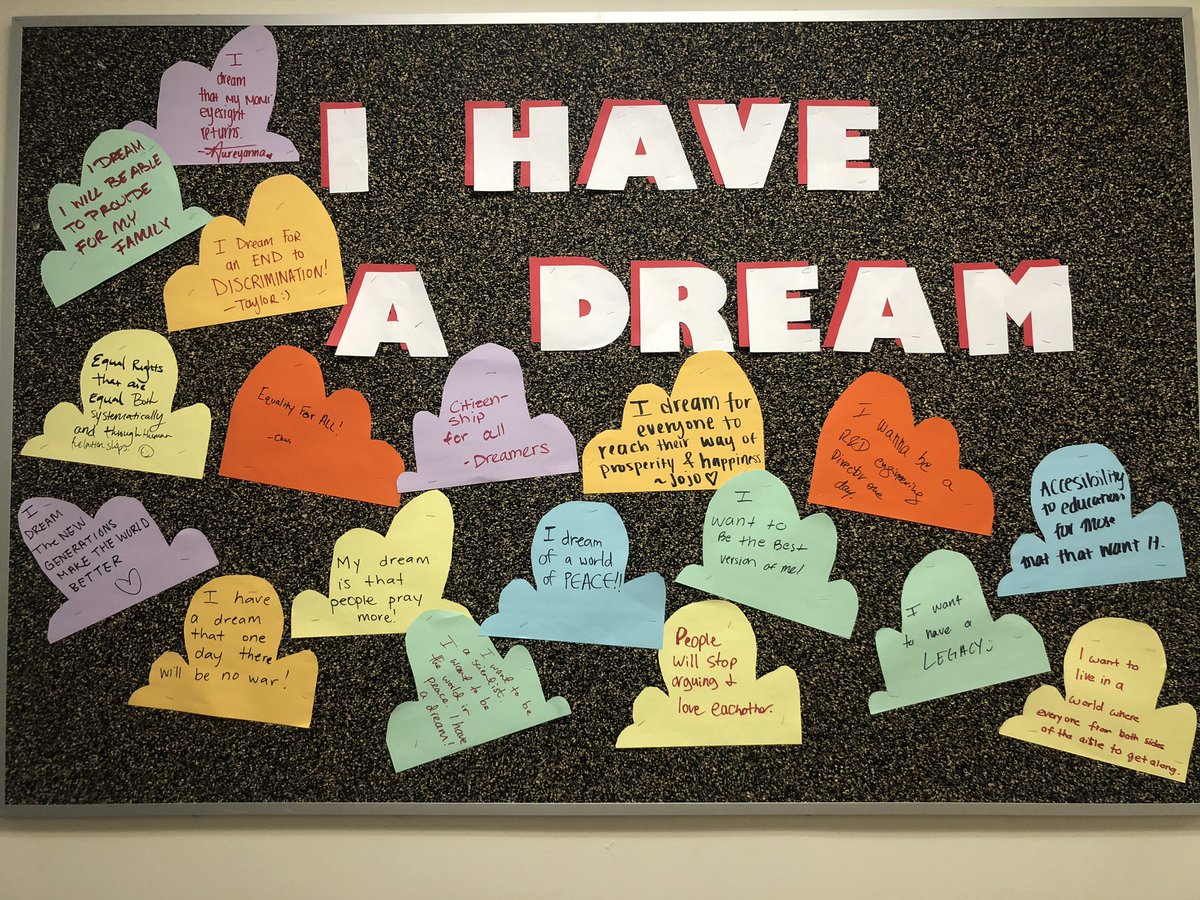 I HAVE
A DREAM
I
dream
that my mom's
eyesight
returns.
-Aureyanna
I DREAM
I WILL BE ABLE
TO PROVIDE
FOR MY
FAMILY
I Dream FOR
an END to
DISCRIMINATION!
-Taylor :)
Equal Rights
that are
equal Both
systematically
and through Human
Relationships. ☺
Equality For ALL!
-Chas
Citizen-
ship
for all
-Dreamers
I dream for
everyone to
reach their way of
prosperity & happiness
~ JoJo ♡
I wanna be a
R&D engineering
Director one
day.
Accesibility
to education
for those
that that want it.
I
DREAM
The NEW
GENERATIONS
MAKE THE WORLD
BETTER ♡
My dream
is that
people pray
more!
I dream
of a world
of PEACE!!
I
want to
Be the Best
version of me!
I have
a dream
that one
day there
will be no war!
I want to be
a scientist.
I want to be
the world in
peace. I have
a dream!
People
will stop
arguing &
love eachother.
I want
to have a
LEGACY:
I want to
live in a
world where
everyone from both sides
of the aisle to get along.